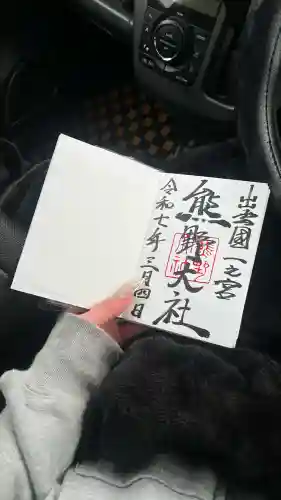 出雲國一之宮
熊野大社
令和七年三月四日